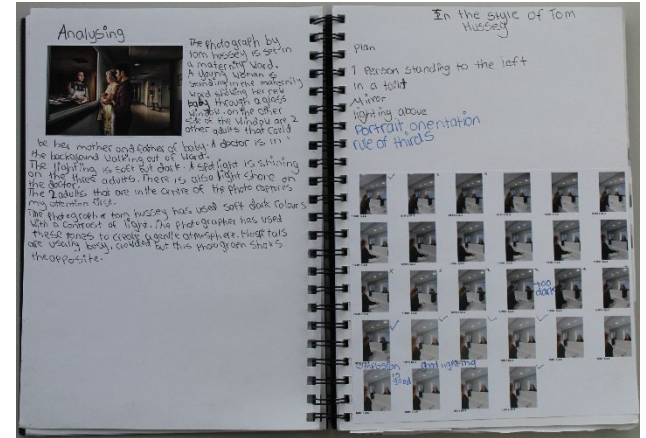 Analysing
The photograph by
tom hussey is set in
a maternity ward.
A young woman is
standing in the maternity
ward showing her new
baby through a glass
window, on the other
side of the window are 2
other adults that could
be her mother and father of baby. A doctor is in
the background walking out of ward.
The lighting is soft but dark. A spotlight is shining
on the three adults. There is also light shore on
the doctor.
The 2 adults that are in the centre of the photo captures
my attention first.
The photographer tom hussey has used soft dark colours
with a contrast of light. The photographer has used
these tones to create a gentle atmosphere. Hospitals
are usually busy, crowded but this photograph shows
the opposite.
In the style of Tom
Hussey
plan
1 Person standing to the left
in a toilet
Mirror
lighting above
Portrait orientation
rule of thirds
too
dark
is
good lighting
good